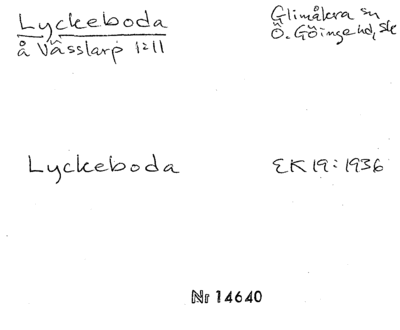 Lyckeboda
å Vässlarp 1:11
Glimåkra sn
Ö. Göinge hd, Sk
Lyckeboda
EK 19: 1936
Nr 14640